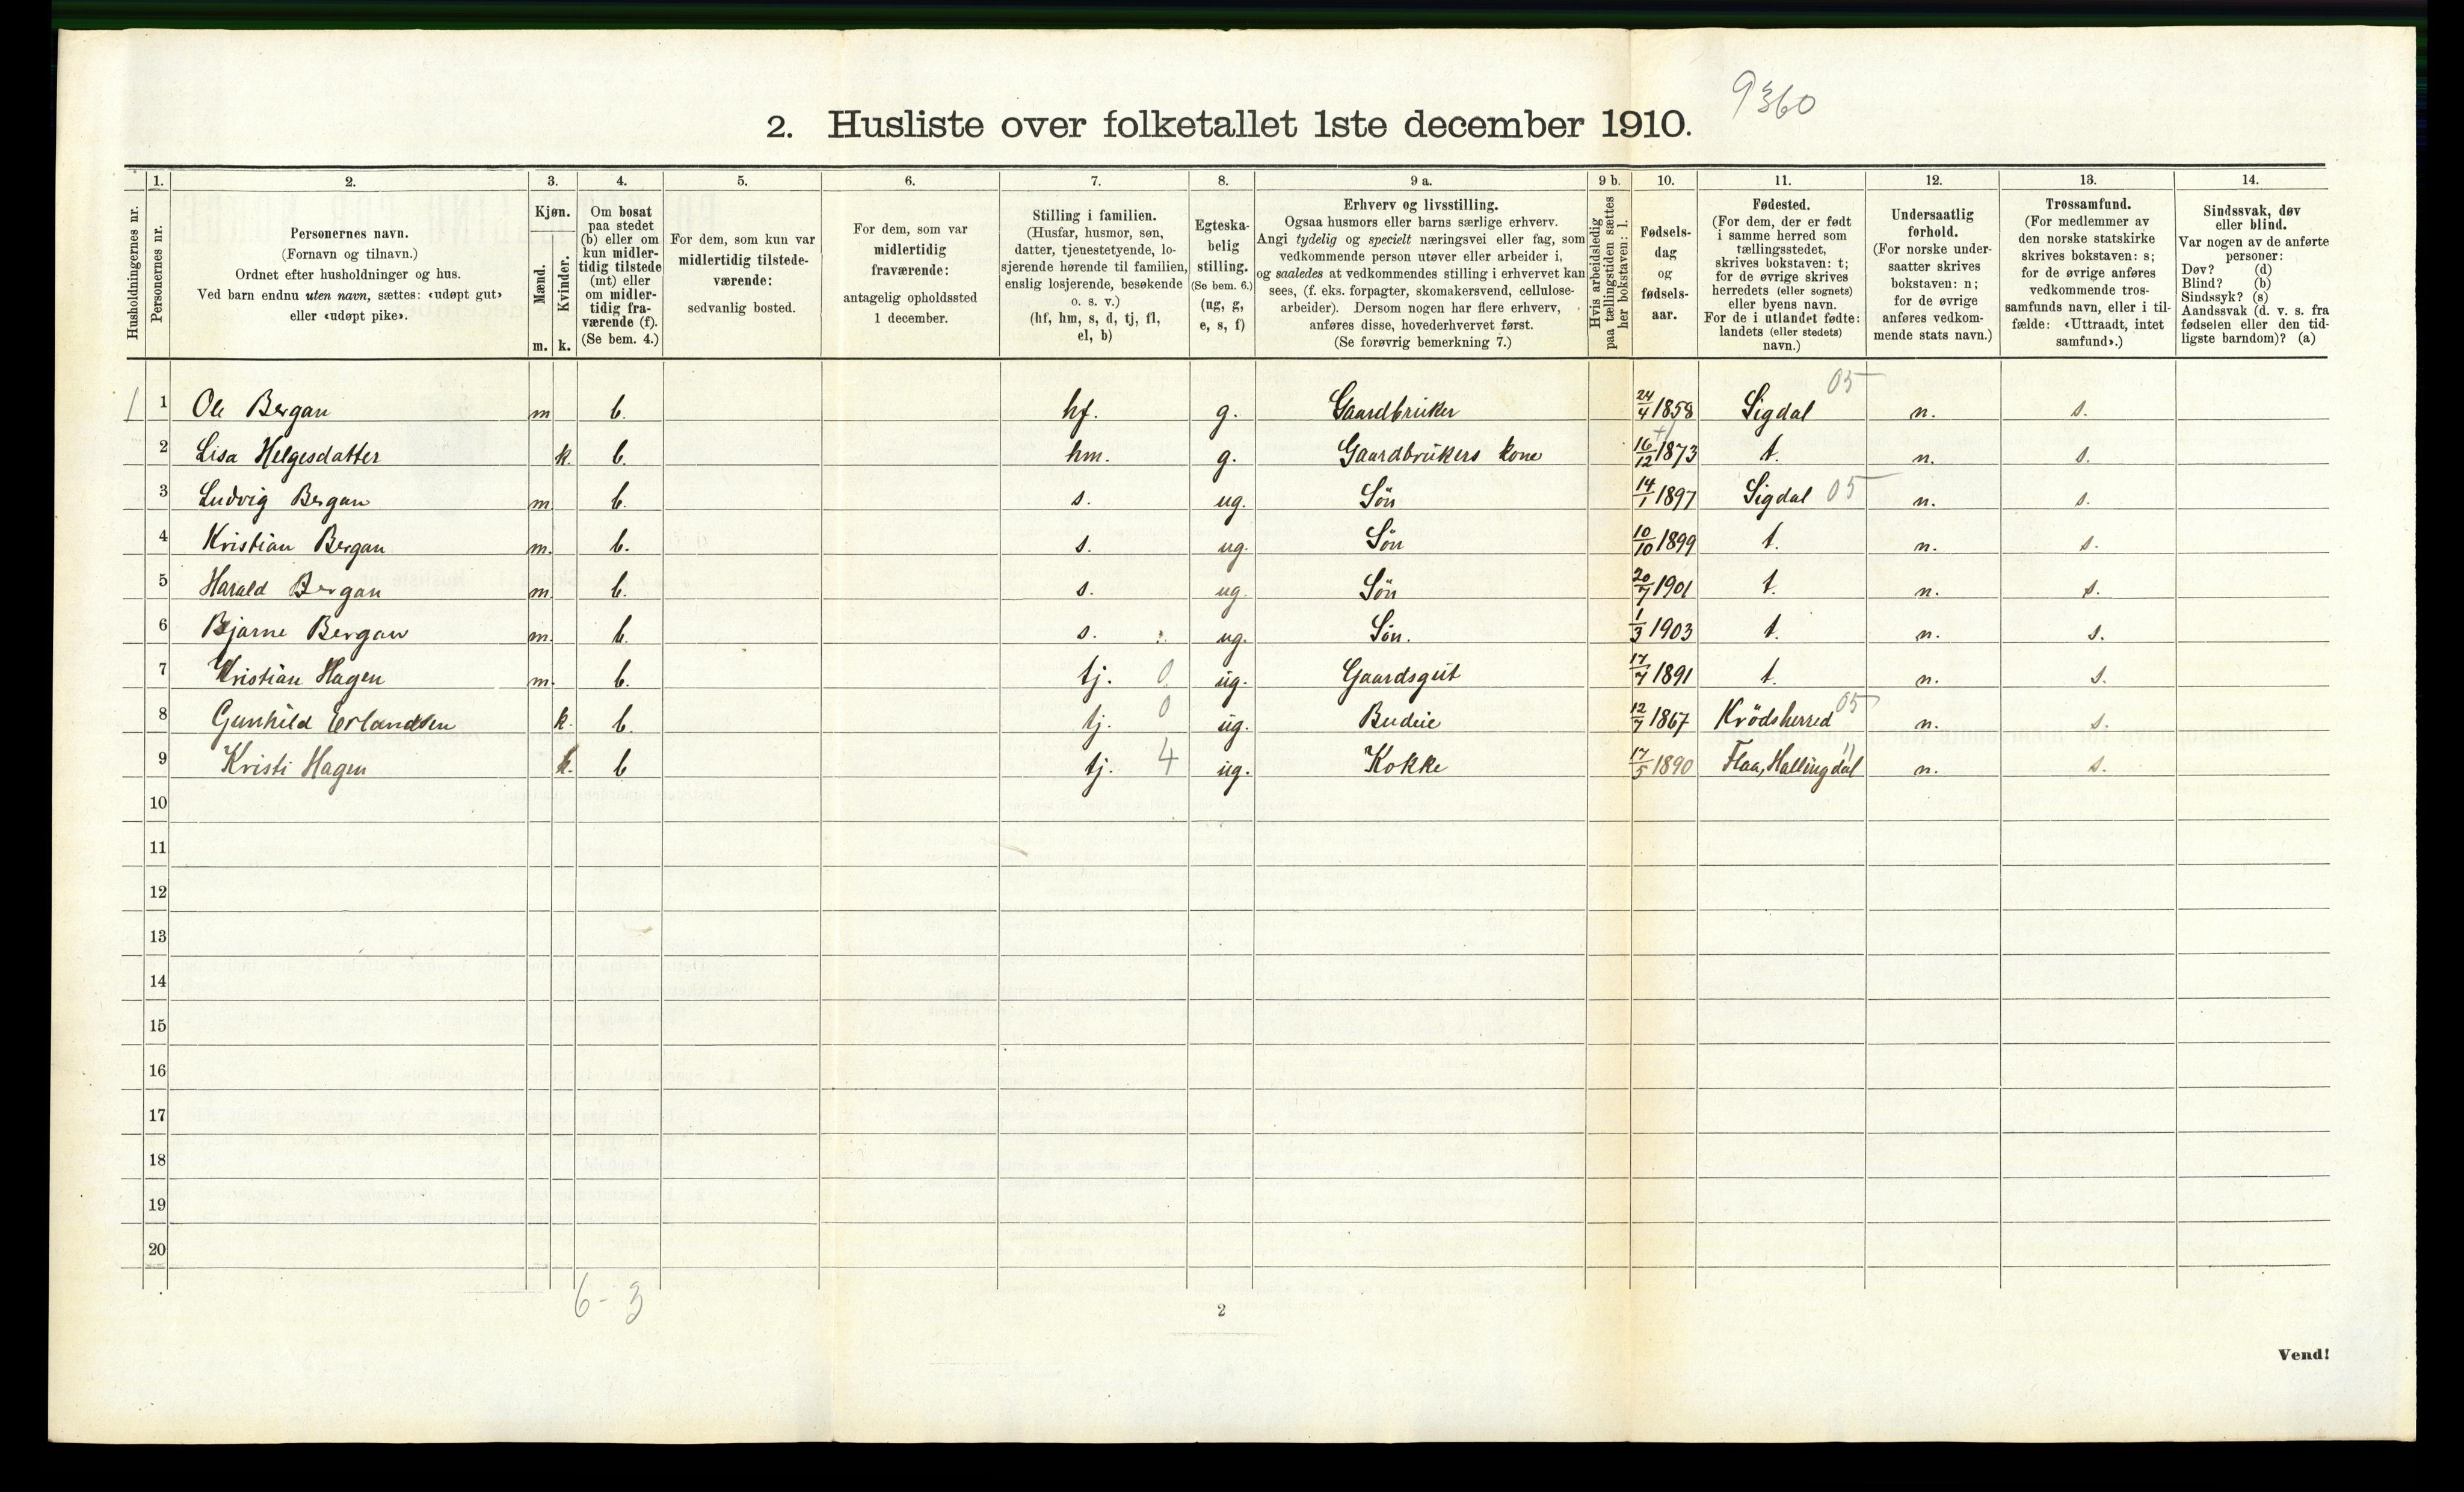 9360
2. Husliste over folketallet 1ste december 1910.
Husholdningernes nr.
1. Personernes nr.
2. Personernes navn.
(Fornavn og tilnavn.)
Ordnet efter husholdninger og hus.
Ved barn endnu uten navn, sættes: «udøpt gut»
eller «udøpt pike».
3. Kjøn.
Mænd. Kvinder.
m. k.
4. Om bosat
paa stedet
(b) eller om
kun midler-
tidig tilstede
(mt) eller
om midler-
tidig fra-
værende (f).
(Se bem. 4.)
5. For dem, som kun var
midlertidig tilstede-
værende:
sedvanlig bosted.
6. For dem, som var
midlertidig
fraværende:
antagelig opholdssted
1 december.
7. Stilling i familien.
(Husfar, husmor, søn,
datter, tjenestetyende, lo-
sjerende hørende til familien,
enslig losjerende, besøkende
o. s. v.)
(hf, hm, s, d, tj, fl,
el, b)
8. Egteska-
belig
stilling.
(Se bem. 6.)
(ug, g,
e, s, f)
9 a. Erhverv og livsstilling.
Ogsaa husmors eller barns særlige erhverv.
Angi tydelig og specielt næringsvei eller fag, som
vedkommende person utøver eller arbeider i,
og saaledes at vedkommendes stilling i erhvervet kan
sees, (f. eks. forpagter, skomakersvend, cellulose-
arbeider). Dersom nogen har flere erhverv,
anføres disse, hovederhvervet først.
(Se forøvrig bemerkning 7.)
9 b. Hvis arbeidsledig
paa tællingstiden sættes
her bokstaven: l.
10. Fødsels-
dag
og
fødsels-
aar.
11. Fødested.
(For dem, der er født
i samme herred som
tællingsstedet,
skrives bokstaven: t;
for de øvrige skrives
herredets (eller sognets)
eller byens navn.
For de i utlandet fødte:
landets (eller stedets)
navn.)
12. Undersaatlig
forhold.
(For norske under-
saatter skrives
bokstaven: n;
for de øvrige
anføres vedkom-
mende stats navn.)
13. Trossamfund.
(For medlemmer av
den norske statskirke
skrives bokstaven: s;
for de øvrige anføres
vedkommende tros-
samfunds navn, eller i til-
fælde: «Uttraadt, intet
samfund».)
14. Sindssvak, døv
eller blind.
Var nogen av de anførte
personer:
Døv? (d)
Blind? (b)
Sindssyk? (s)
Aandssvak (d. v. s. fra
fødselen eller den tid-
ligste barndom)? (a)
1 1 Ole Bergan m b. hf. g. Gaardbruker 24/4 1858 Sigdal 05 n. s.
2 Lisa Helgesdatter k. b. hm. g. Gaardbrukers kone 16/12 1873 t. n. s.
3 Ludvig Bergan m. b. s. ug. Sön 14/1 1897 Sigdal 05 n. s.
4 Kristian Bergan m. b. s. ug. Sön 10/10 1899 t. n. s.
5 Harald Bergan m. b. s. ug. Sön 20/7 1901 t. n. s.
6 Bjarne Bergan m. b. s. ug. Sön. 1/3 1903 t. n. s.
7 Kristian Hagen m. b. tj. 0 ug. Gaardsgut 17/7 1891 t. n. s.
8 Gunhild Erlandsen k. b. tj. 0 ug. Budeie 12/7 1867 Krödsherred 05 n. s.
9 Kristi Hagen k. b tj. 4 ug. Kokke 17/5 1890 Flaa, Hallingdal n. s.
10
11
12
13
14
15
16
17
18
19
20
6 - 3
2
Vend!